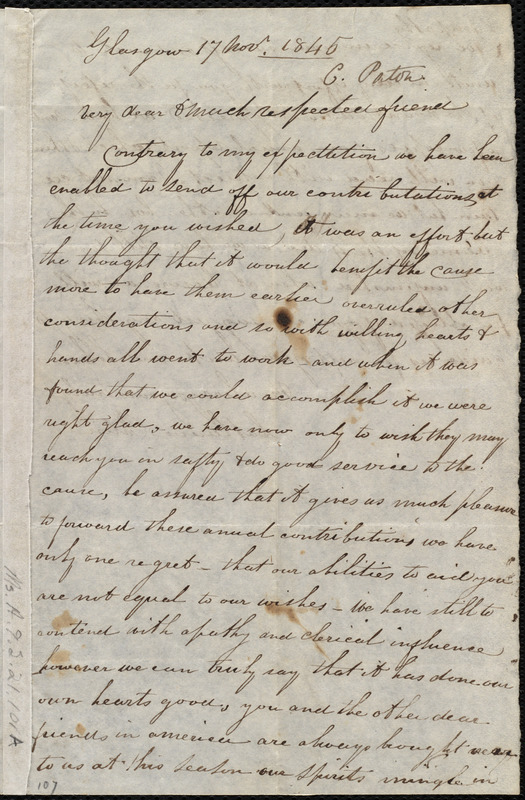 Glasgow 17 Novr. 1845
C. Paton
Very dear & much respected friend
Contrary to my expectetion we have been
enabled to send off our contributations at
the time you wished, it was an effort but
the thought that it would benefit the cause
more to have them earlier overruled other
considerations and so with willing hearts &
hands all went to work - and when it was
found that we could accomplish it we were
right glad, we have now only to wish they may
reach you in safty & do good service to the
cause, be assured that it gives us much pleasure
to forward these anual contributions we have
only one regret - that our abilities to aid you
are not equal to our wishes - we have still to
contend with apathy and clerical influence
however we can truly say that it has done our
own hearts good, you and the other dear
friends in america are always brought near
to us at this season our spirits mingle in
Ms. A. 9. 2. 21. 101 A
107